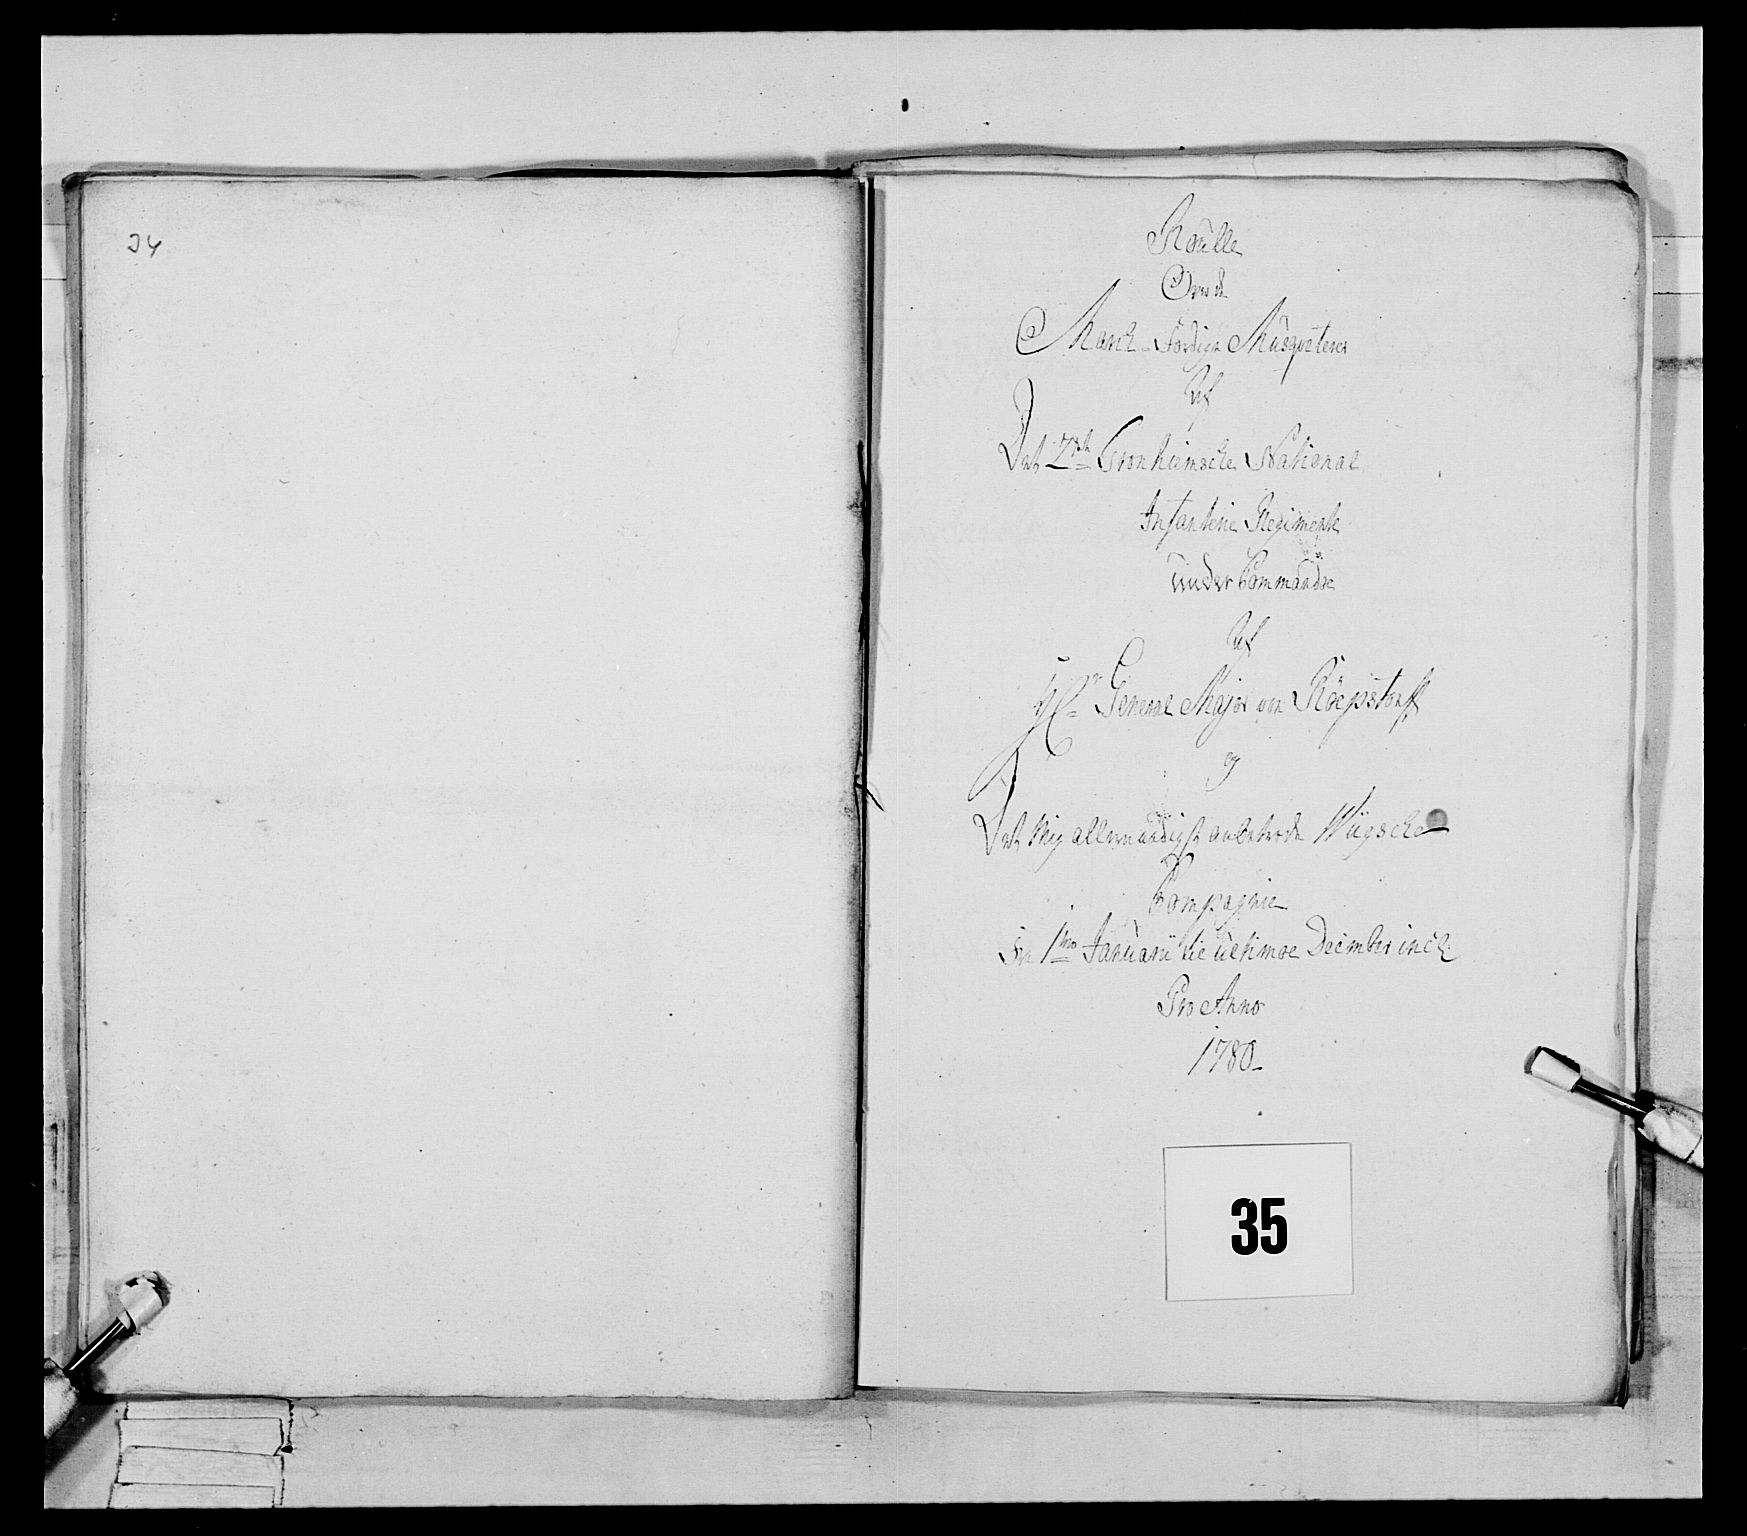 34
Roulle
Over de
Mark-Færdige Musqveterer
Af
Det 2det Tronhiemsche National
Infanterie Regimente
under Commando
Af
Hr General Major von Röepstorff
og
Det Mig allernaadigst anbetroede Wiigsche
Compagnie
Fra 1mo Januarii til ultimoe December incl:
Pro Anno
1780
35